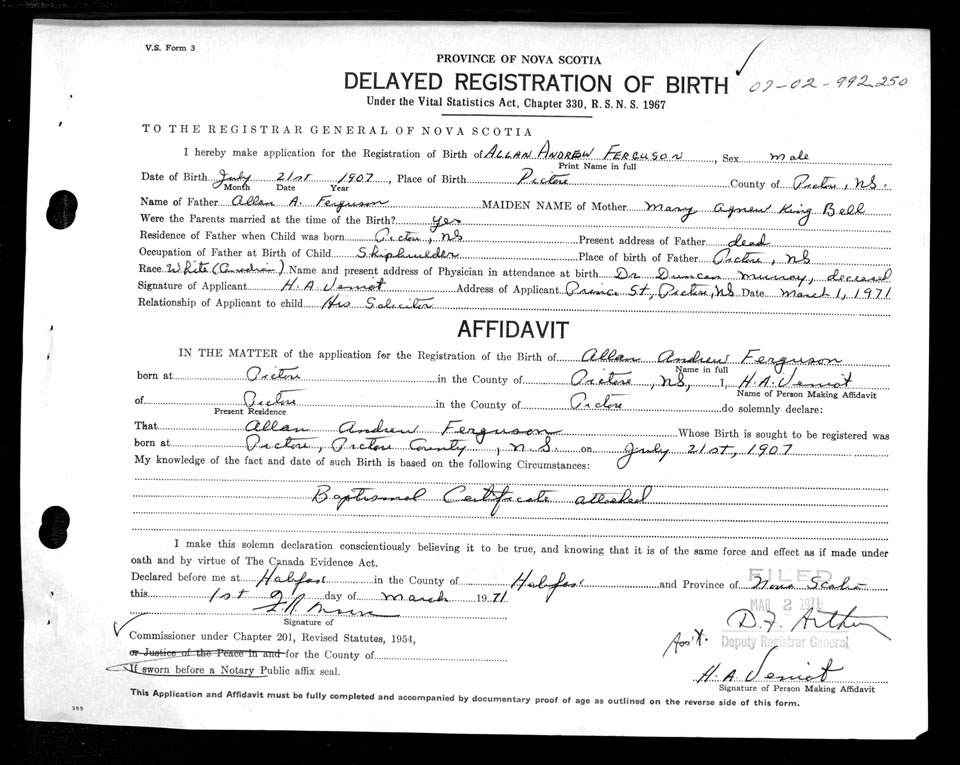 V.S. Form 3
PROVINCE OF NOVA SCOTIA
DELAYED REGISTRATION OF BIRTH
07-02-992250
Under the Vital Statistics Act, Chapter 330, R.S.N.S. 1967
TO THE REGISTRAR GENERAL OF NOVA SCOTIA
I hereby make application for the Registration of Birth of ALLAN ANDREW FERGUSON, Sex male
Print Name in full
Date of Birth July 21st 1907, Place of Birth Pictou County of Pictou, NS.
Month Date Year
Name of Father Allan A. Ferguson MAIDEN NAME of Mother Mary Agnew King Bell
Were the Parents married at the time of the Birth? yes
Residence of Father when Child was born Pictou, NS Present address of Father dead
Occupation of Father at Birth of Child Shipbuilder Place of birth of Father Pictou, NS
Race White (Canadian) Name and present address of Physician in attendance at birth Dr Duncan Murray, deceased
Signature of Applicant H. A. Veniot Address of Applicant Prince St, Pictou, NS Date March 1, 1971
Relationship of Applicant to child His Solicitor
AFFIDAVIT
IN THE MATTER of the application for the Registration of the Birth of Allan Andrew Ferguson
Name in full
born at Pictou in the County of Pictou, NS, I, H. A. Veniot
Name of Person Making Affidavit
of Pictou in the County of Pictou do solemnly declare:
Present Residence
That Allan Andrew Ferguson Whose Birth is sought to be registered was
born at Pictou, Pictou County, N.S. on July 21st, 1907
My knowledge of the fact and date of such Birth is based on the following Circumstances:
Baptismal Certificate attached
I make this solemn declaration conscientiously believing it to be true, and knowing that it is of the same force and effect as if made under
oath and by virtue of The Canada Evidence Act.
Declared before me at Halifax in the County of Halifax and Province of Nova Scotia
FILED
this 1st day of March 1971
MAR 2 1971
Signature of
D. F. Arthur
Commissioner under Chapter 201, Revised Statutes, 1954,
Ass't. Deputy Registrar General
or Justice of the Peace in and for the County of
If sworn before a Notary Public affix seal.
H. A. Veniot
Signature of Person Making Affidavit
This Application and Affidavit must be fully completed and accompanied by documentary proof of age as outlined on the reverse side of this form.